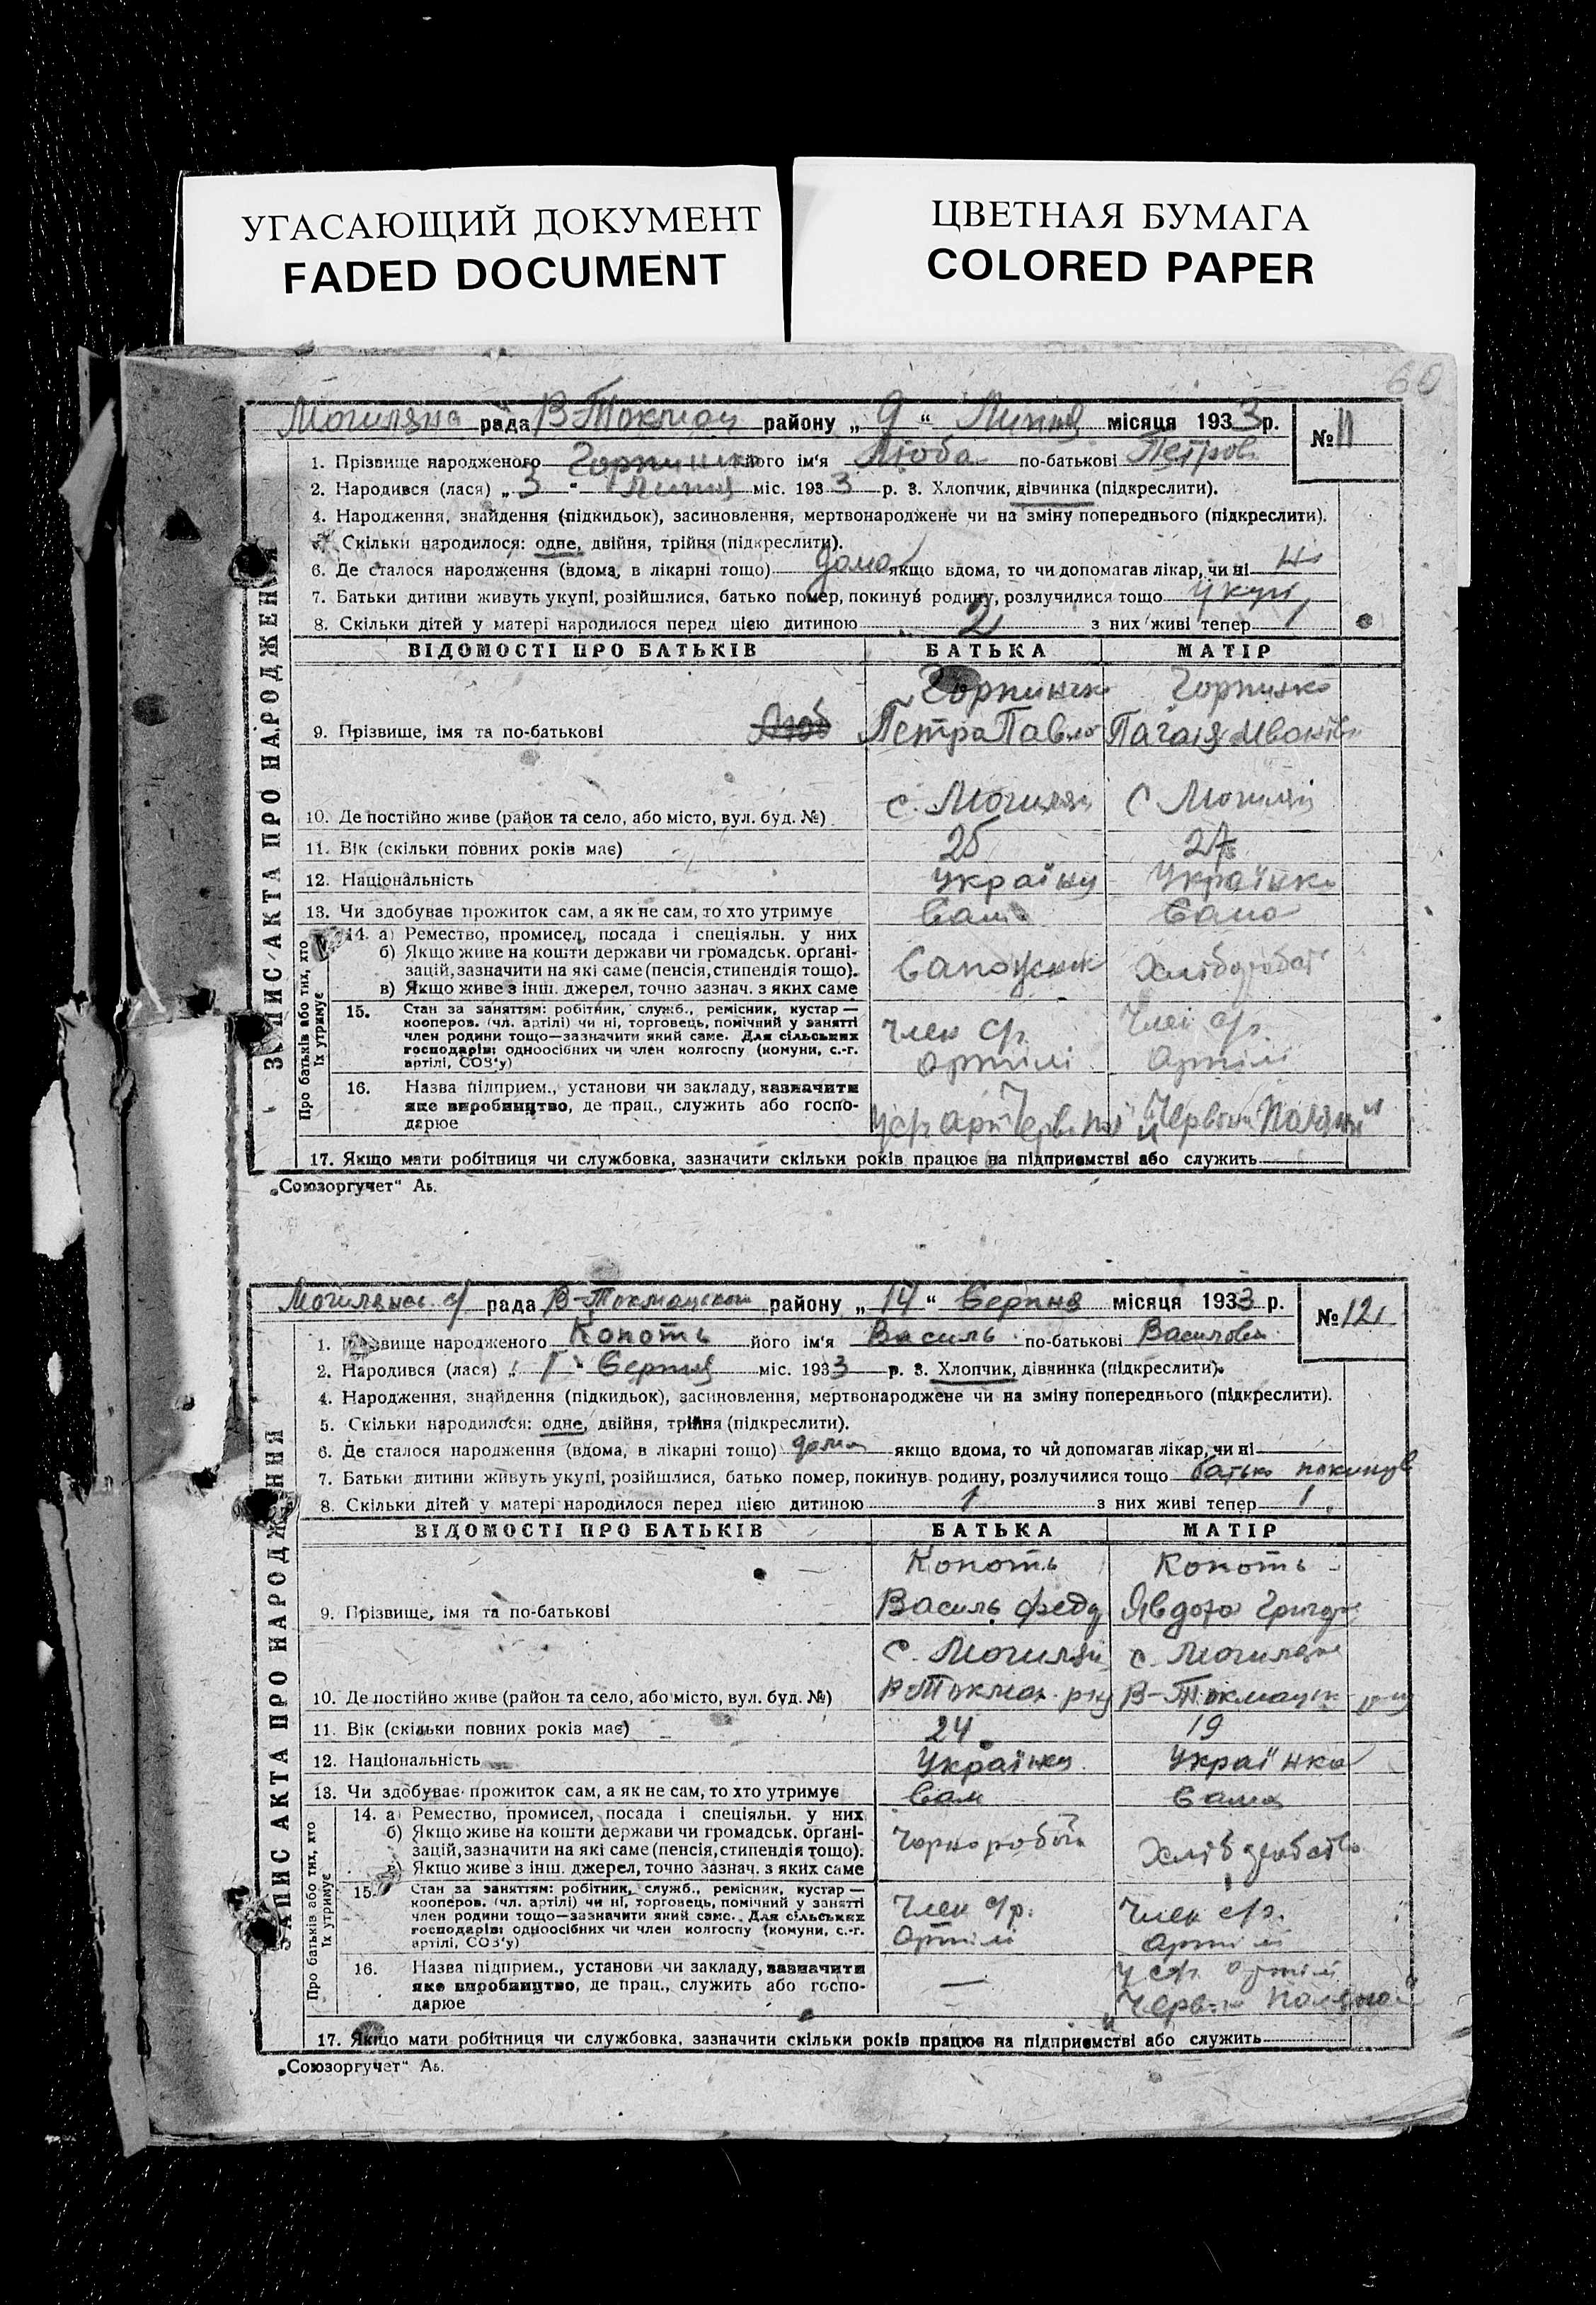 УГАСАЮЩИЙ ДОКУМЕНТ
FADED DOCUMENT
ЦВЕТНАЯ БУМАГА
COLORED PAPER
60
ЗАПИС АКТА ПРО НАРОДЖЕННЯ
рада В-Токмац району „ 9 “ Липня місяця 1933 р. № 11
1. Прізвище народженого Горпинко його ім‘я Люба по-батькові Петров
2. Народився (лася) „ 3 “ Липня міс. 1933 р. 3. Хлопчик, дівчинка (підкреслити).
4. Народження, знайдення (підкидьок), засиновлення, мертвонароджене чи на зміну попереднього (підкреслити).
Скільки народилося: одне, двійня, трійня (підкреслити).
6. Де сталося народження (вдома, в лікарні тощо) дома якщо вдома, то чи допомагав лікар, чи ні
7. Батьки дитини живуть укупі, розійшлися, батько помер, покинув родину, розлучилися тощо укупі
8. Скільки дітей у матері народилося перед цією дитиною 2 з них живі тепер
ВІДОМОСТІ ПРО БАТЬКІВ БАТЬКА МАТІР
Горпинко Горпинко
9. Прізвище, імя та по-батькові Люб Петра Павло
с. Могиляни с Могиляни
10. Де постійно живе (район та село, або місто, вул. буд. №)
11. Вік (скільки повних років має) 25 27
12. Національність Українц Українка
13. Чи здобуває прожиток сам, а як не сам, то хто утримує Сам Сама
Про батьків або тих, хто їх утримує
14. а) Ремество, промисел, посада і спеціяльн. у них
б) Якщо живе на кошти держави чи громадськ. органі-
зацій, зазначити на які саме (пенсія, стипендія тощо).
в) Якщо живе з інш. джерел, точно зазнач. з яких саме
15. Стан за заняттям: робітник, служб., ремісник, кустар —
кооперов. (чл. артілі) чи ні, торговець, помічний у занятті
член родини тощо—зазначити який саме. Для сільських
господарів: одноосібних чи член колгоспу (комуни, с.-г.
артілі, СОЗ‘у)
член с/г. Член с/г.
артілі артілі
16. Назва підприєм., установи чи закладу, зазначити
яке виробництво, де прац., служить або госпо-
дарюе
17. Якщо мати робітниця чи службовка, зазначити скільки років працює на підприємстві або служить
„Союзоргучет“ Аь.
ЗАПИС АКТА ПРО НАРОДЖЕННЯ
рада В-Токмацьком району „ 14 “ Серпня місяця 1933 р. № 12
1. Прізвище народженого Копоть його ім‘я Василь по-батькові Васильов
2. Народився (лася) „ “ Серпня міс. 1933 р. 3. Хлопчик, дівчинка (підкреслити).
4. Народження, знайдення (підкидьок), засиновлення, мертвонароджене чи на зміну попереднього (підкреслити).
5. Скільки народилося: одне, двійня, трійня (підкреслити).
6. Де сталося народження (вдома, в лікарні тощо) дома якщо вдома, то чи допомагав лікар, чи ні
7. Батьки дитини живуть укупі, розійшлися, батько помер, покинув родину, розлучилися тощо батько покинув
8. Скільки дітей у матері народилося перед цією дитиною 1 з них живі тепер 1
ВІДОМОСТІ ПРО БАТЬКІВ БАТЬКА МАТІР
Копоть Копоть
9. Прізвище, імя та по-батькові Василь Федо Явдоха Григор
с. Могиляни с. Могиляни
10. Де постійно живе (район та село, або місто, вул. буд. №) В-Токмац. р-ну В-Токмацьк
11. Вік (скільки повних років має) 24 19
12. Національність Українц Українка
13. Чи здобуває прожиток сам, а як не сам, то хто утримує Сам Сама
Про батьків або тих, хто їх утримує
14. а) Ремество, промисел, посада і спеціяльн. у них
б) Якщо живе на кошти держави чи громадськ. органі-
зацій, зазначити на які саме (пенсія, стипендія тощо).
в) Якщо живе з інш. джерел, точно зазнач. з яких саме
Чорнороб
15. Стан за заняттям: робітник, служб., ремісник, кустар —
кооперов. (чл. артілі) чи ні, торговець, помічний у занятті
член родини тощо—зазначити який саме. Для сільських
господарів: одноосібних чи член колгоспу (комуни, с.-г.
артілі, СОЗ‘у)
Член с/г. Член с/г.
Артілі артілі
16. Назва підприєм., установи чи закладу, зазначити
яке виробництво, де прац., служить або госпо-
дарюе
— у с/г. артілі
17. Якщо мати робітниця чи службовка, зазначити скільки років працює на підприємстві або служить
„Союзоргучет“ Аь.